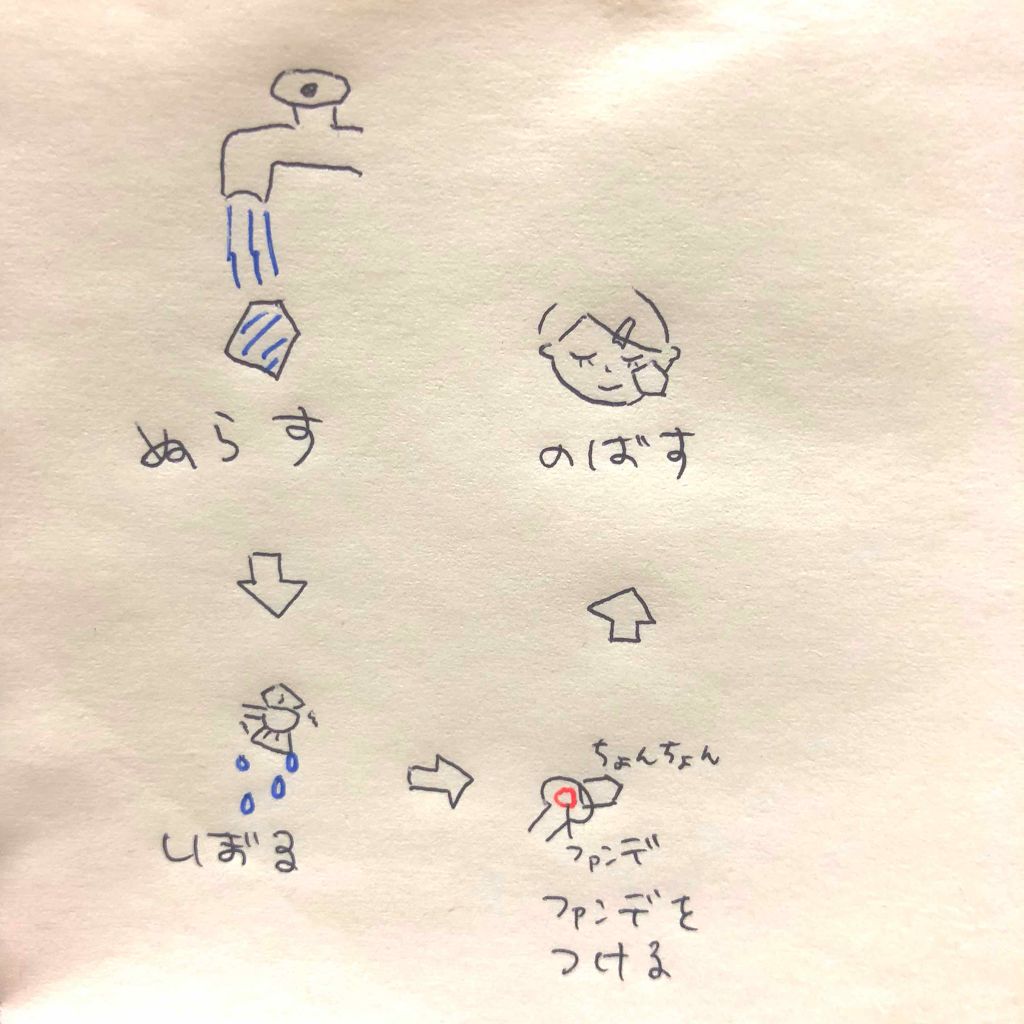 ぬらす
しぼる
ちょんちょん
ファンデ
ファンデを
つける
のばす